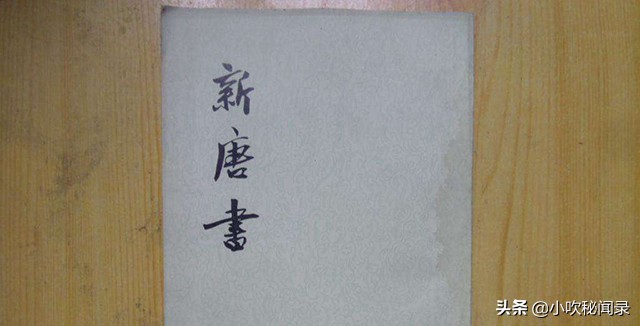 新唐書
头条 @小吹秘闻录